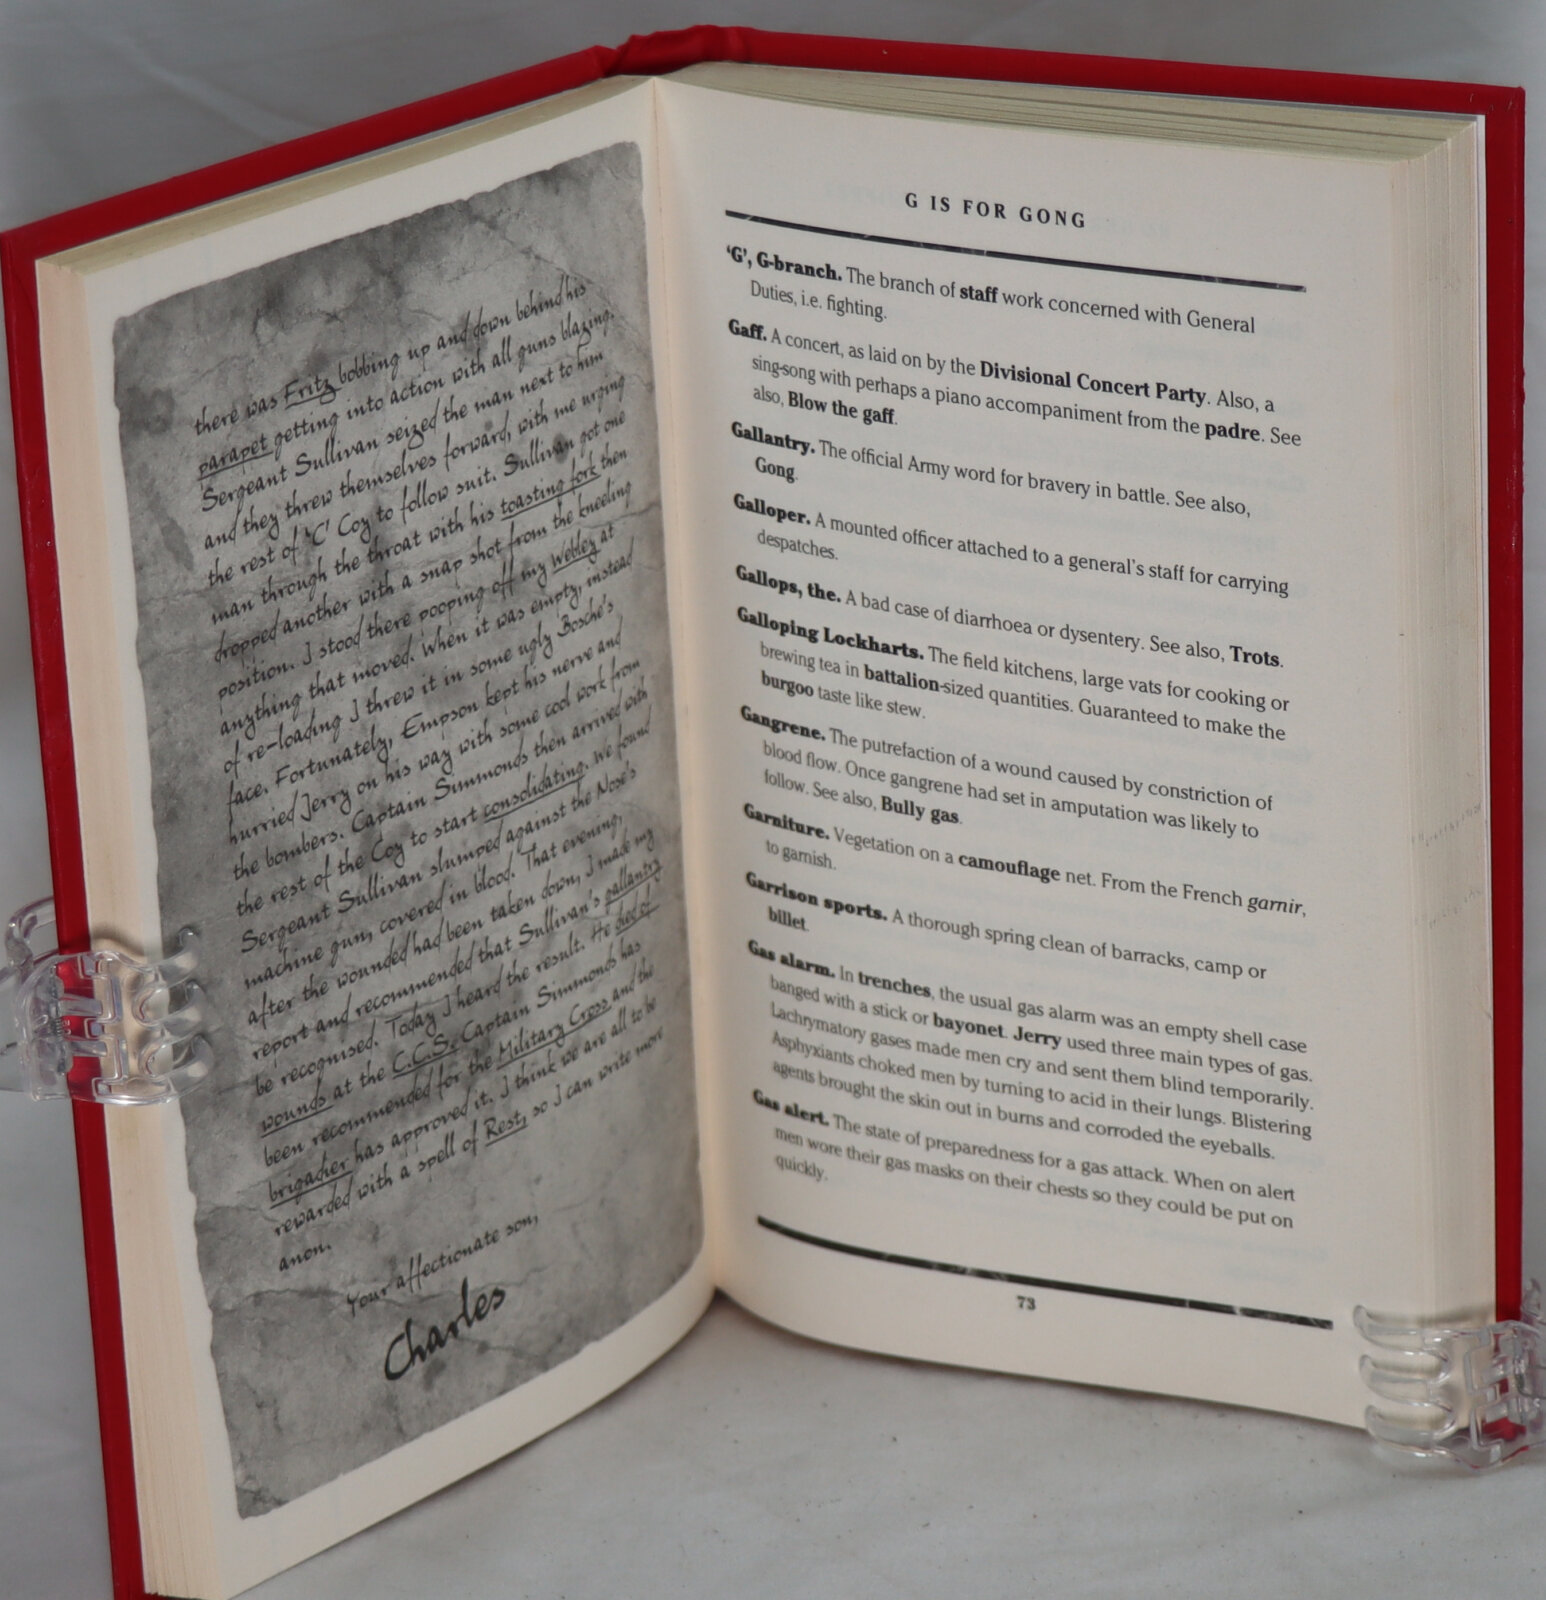 there was Fritz bobbing up and down behind his
parapet getting into action with all guns blazing.
Sergeant Sullivan seized the man next to him
and they threw themselves forward, with me urging
the rest of 'C' Coy to follow suit. Sullivan got one
man through the throat with his toasting fork then
dropped another with a snap shot from the kneeling
position. I stood there pooping off my Webley at
anything that moved. When it was empty, instead
of re-loading I threw it in some ugly Bosche's
face. Fortunately, Empson kept his nerve and
hurried Jerry on his way with some cool work from
the bombers. Captain Simmonds then arrived with
the rest of the Coy to start consolidating. We found
Sergeant Sullivan slumped against the Nose's
machine gun, covered in blood. That evening,
after the wounded had been taken down, I made my
report and recommended that Sullivan's gallantry
be recognised. Today I heard the result. He died of
wounds at the C.C.S. Captain Simmonds has
been recommended for the Military Cross and the
brigadier has approved it. I think we are all to be
rewarded with a spell of Rest, so I can write more
anon.
Your affectionate son,
Charles
G IS FOR GONG
'G', G-branch. The branch of staff work concerned with General
Duties, i.e. fighting.
Gaff. A concert, as laid on by the Divisional Concert Party. Also, a
sing-song with perhaps a piano accompaniment from the padre. See
also, Blow the gaff.
Gallantry. The official Army word for bravery in battle. See also,
Gong.
Galloper. A mounted officer attached to a general's staff for carrying
despatches.
Gallops, the. A bad case of diarrhoea or dysentery. See also, Trots.
Galloping Lockharts. The field kitchens, large vats for cooking or
brewing tea in battalion-sized quantities. Guaranteed to make the
burgoo taste like stew.
Gangrene. The putrefaction of a wound caused by constriction of
blood flow. Once gangrene had set in amputation was likely to
follow. See also, Bully gas.
Garniture. Vegetation on a camouflage net. From the French garnir,
to garnish.
Garrison sports. A thorough spring clean of barracks, camp or
billet.
Gas alarm. In trenches, the usual gas alarm was an empty shell case
banged with a stick or bayonet. Jerry used three main types of gas.
Lachrymatory gases made men cry and sent them blind temporarily.
Asphyxiants choked men by turning to acid in their lungs. Blistering
agents brought the skin out in burns and corroded the eyeballs.
Gas alert. The state of preparedness for a gas attack. When on alert
men wore their gas masks on their chests so they could be put on
quickly.
73